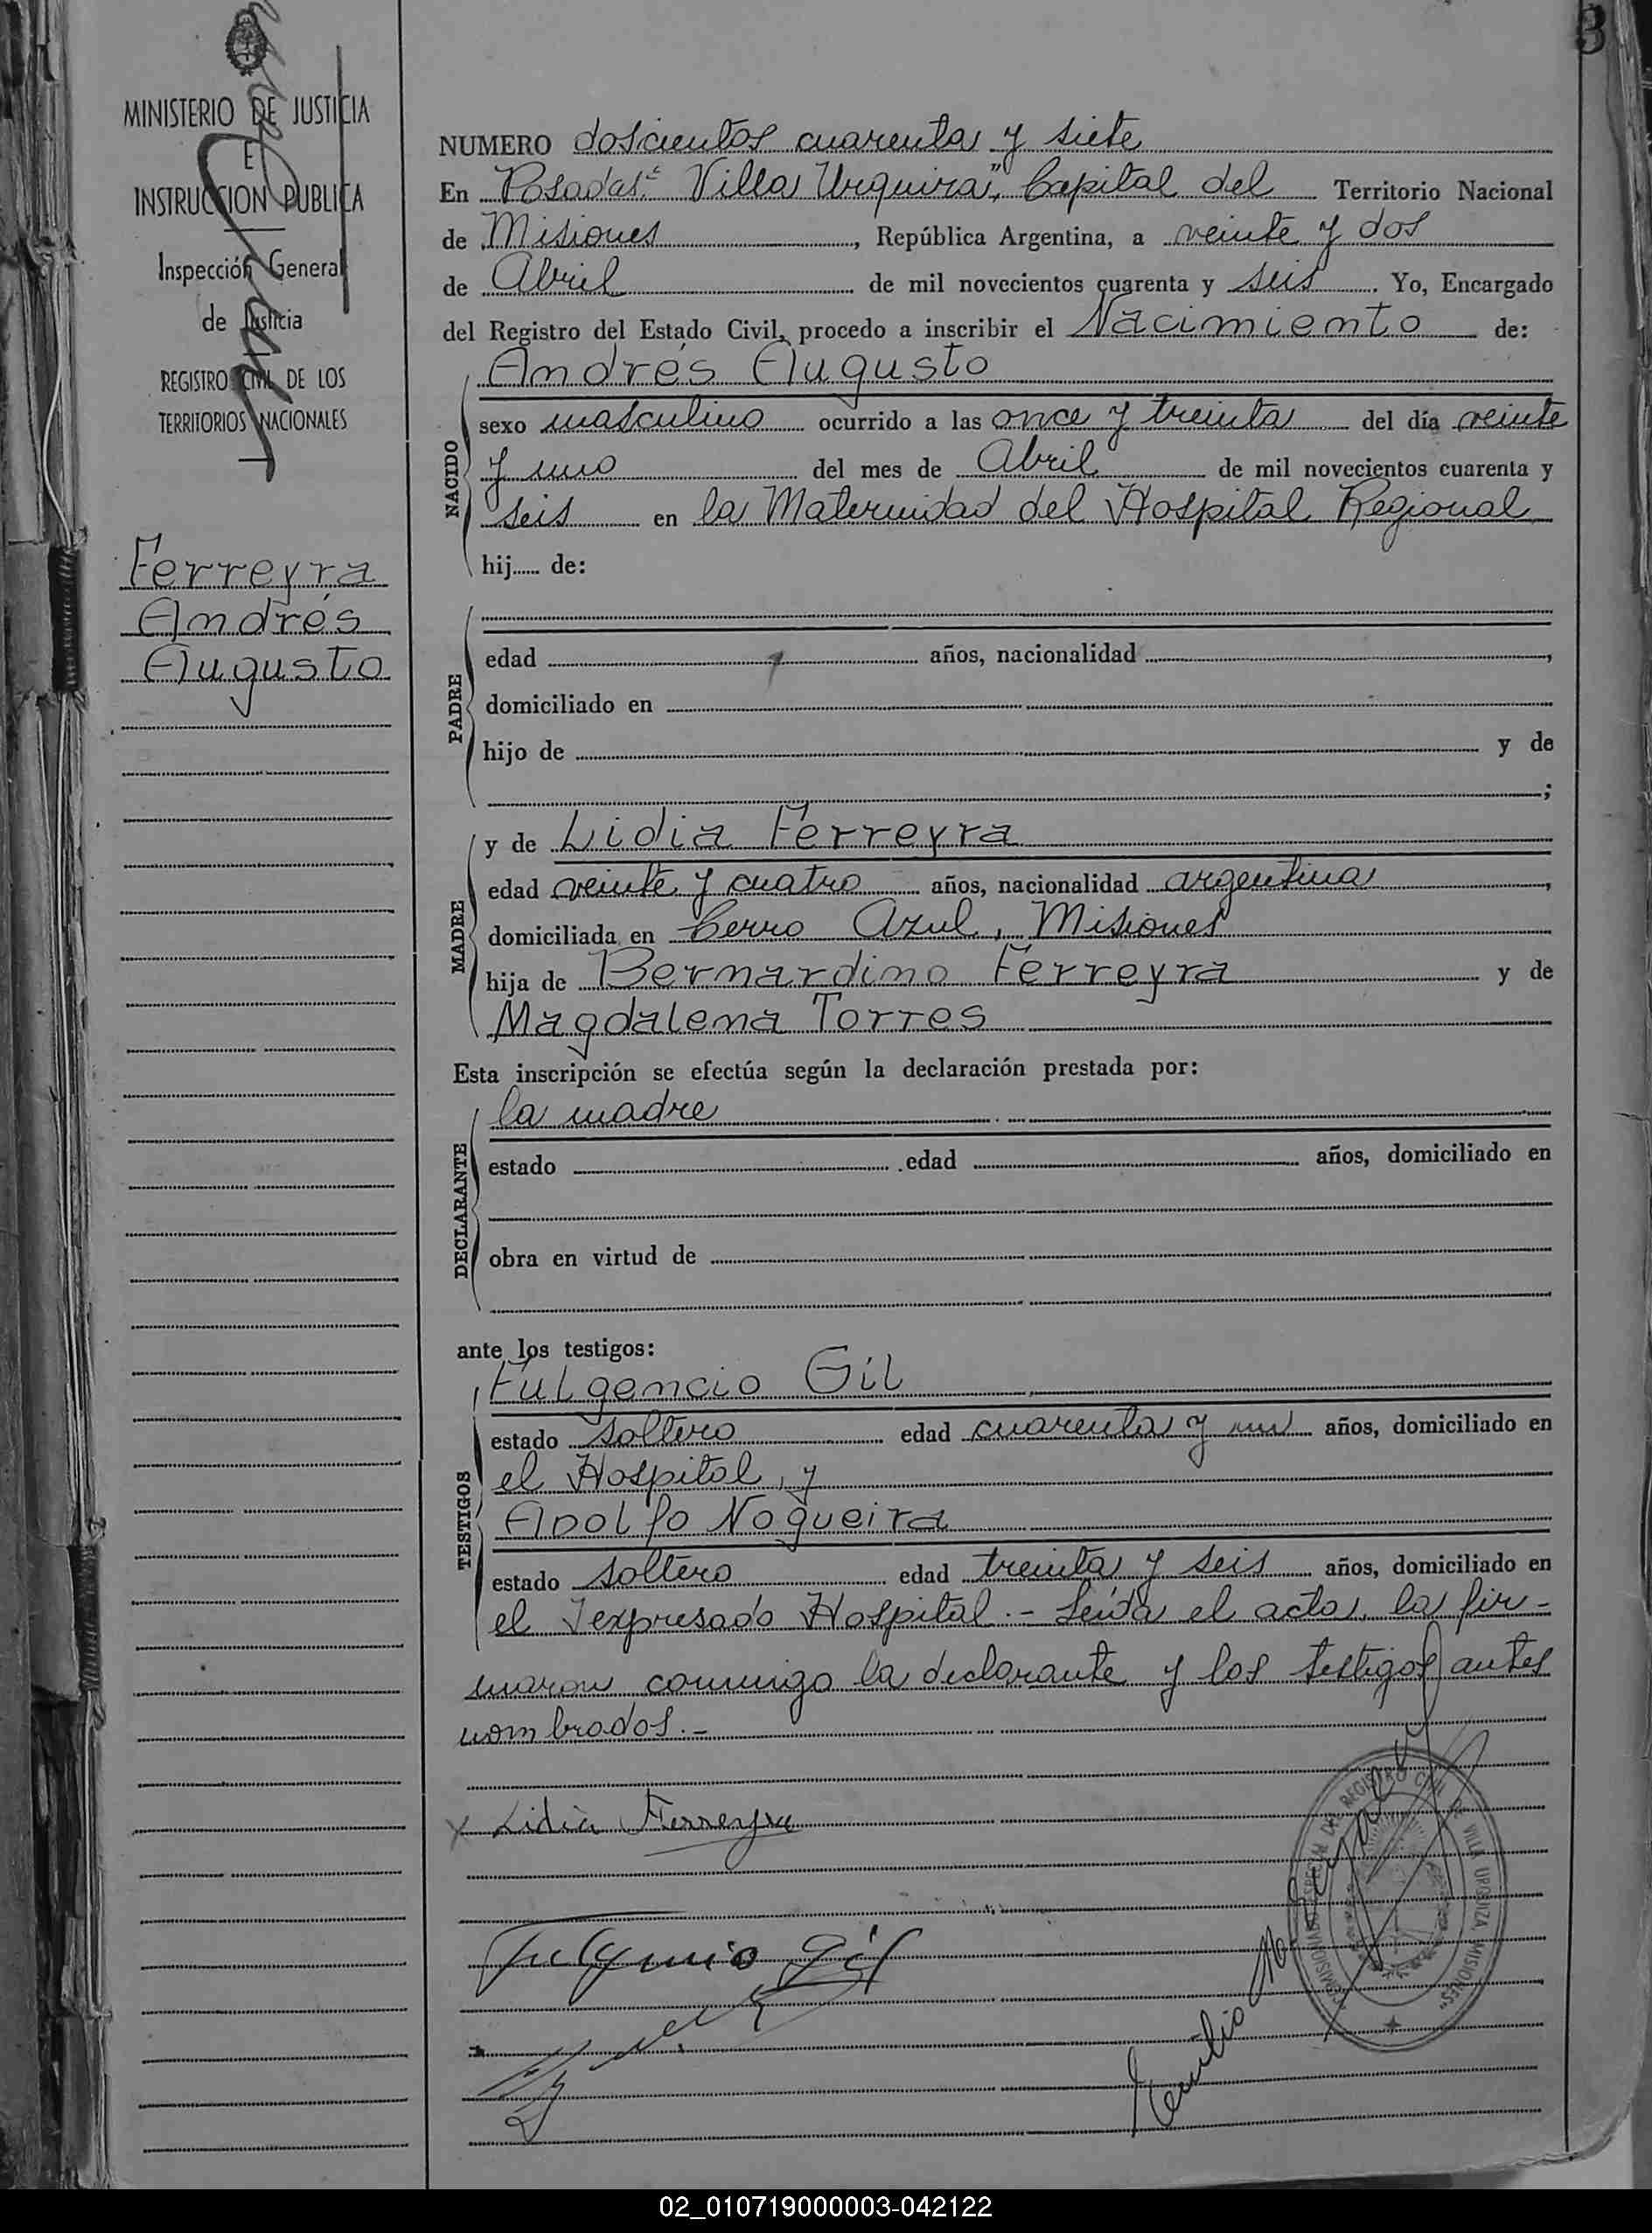 3
MINISTERIO DE JUSTICIA
E
INSTRUCCION PUBLICA
Inspección General
de Justicia
REGISTRO CIVIL DE LOS
TERRITORIOS NACIONALES
Ferreyra
Andrés
Augusto
NUMERO doscientos cuarenta y siete
En Posadas "Villa Urquiza", Capital del Territorio Nacional
de Misiones, República Argentina, a veinte y dos
de Abril de mil novecientos cuarenta y seis. Yo, Encargado
del Registro del Estado Civil, procedo a inscribir el Nacimiento de:
NACIDO
Andrés Augusto
sexo masculino ocurrido a las once y treinta del día veinte
y uno del mes de Abril de mil novecientos cuarenta y
seis en la Maternidad del Hospital Regional
hij...... de:
PADRE
edad años, nacionalidad ,
domiciliado en
hijo de y de
;
MADRE
y de Lidia Ferreyra
edad veinte y cuatro años, nacionalidad argentina,
domiciliada en Cerro Azul, Misiones
hija de Bernardino Ferreyra y de
Magdalena Torres
Esta inscripción se efectúa según la declaración prestada por:
DECLARANTE
la madre
estado edad años, domiciliado en
obra en virtud de
ante los testigos:
TESTIGOS
Fulgencio Gil
estado soltero edad cuarenta y un años, domiciliado en
el Hospital, y
Adolfo Nogueira
estado soltero edad treinta y seis años, domiciliado en
el expresado Hospital.- Leída el acta, la fir-
maron conmigo la declarante y los testigos antes
nombrados.-
x Lidia Ferreyra
Fulgencio Gil
Emilio M.
DEL REGISTRO CIVIL DE VILLA URQUIZA "MISIONES"
02_010719000003-042122